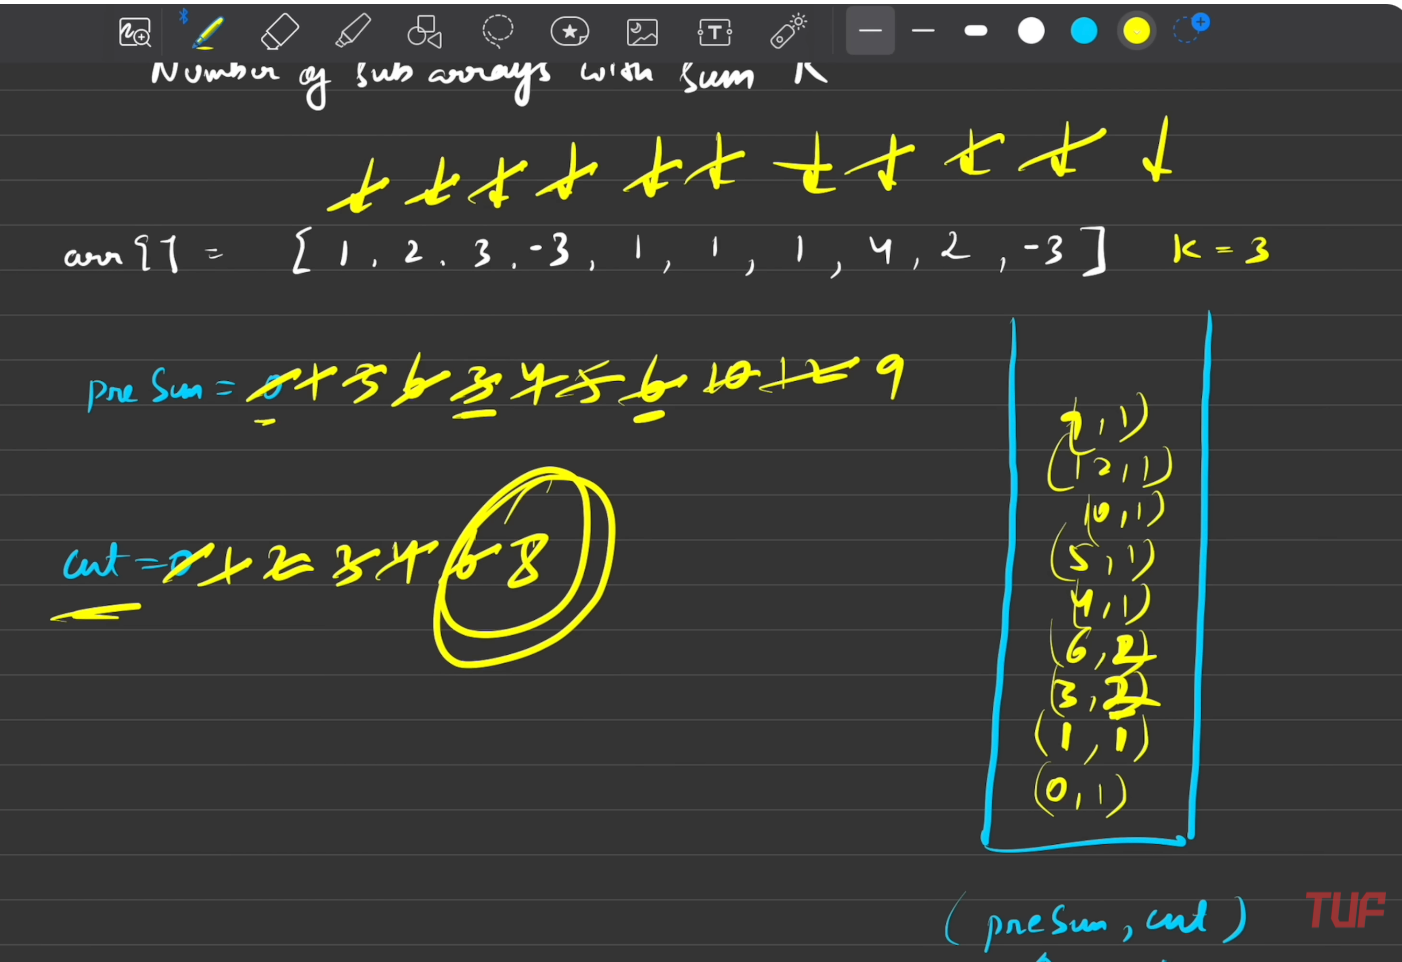 Number of sub arrays with sum K
arr[] = [1, 2, 3, -3, 1, 1, 1, 4, 2, -3] K = 3
preSum = 0 1 3 6 3 4 5 6 10 12 9
cnt = 0 1 2 3 4 6 8
9, 1)
(12, 1)
10, 1)
(5, 1)
4, 1)
(6, 2)
(3, 2)
(1, 1)
(0, 1)
(preSum, cnt)
TUF